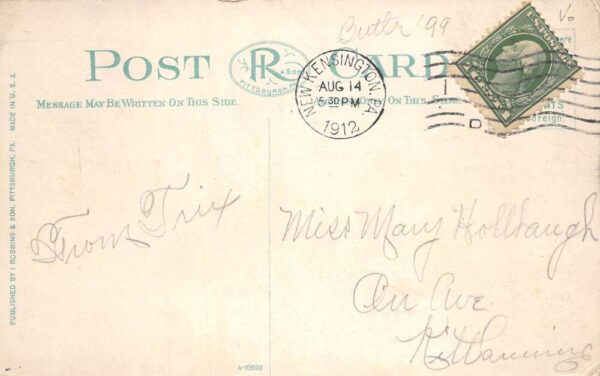 Butler '99
Vo
POST CARD
R
& SON
PITTSBURGH, PA.
MESSAGE MAY BE WRITTEN ON THIS SIDE
ONLY ON THIS SIDE.
NEW KENSINGTON, PA.
AUG 14
5 30 PM
1912
U.S. POSTAGE
D
From Trix
Miss Mary Hollbaugh
Ave.
Kittanning
PUBLISHED BY I. ROBBINS & SON, PITTSBURGH, PA. MADE IN U.S.A.
A-10502